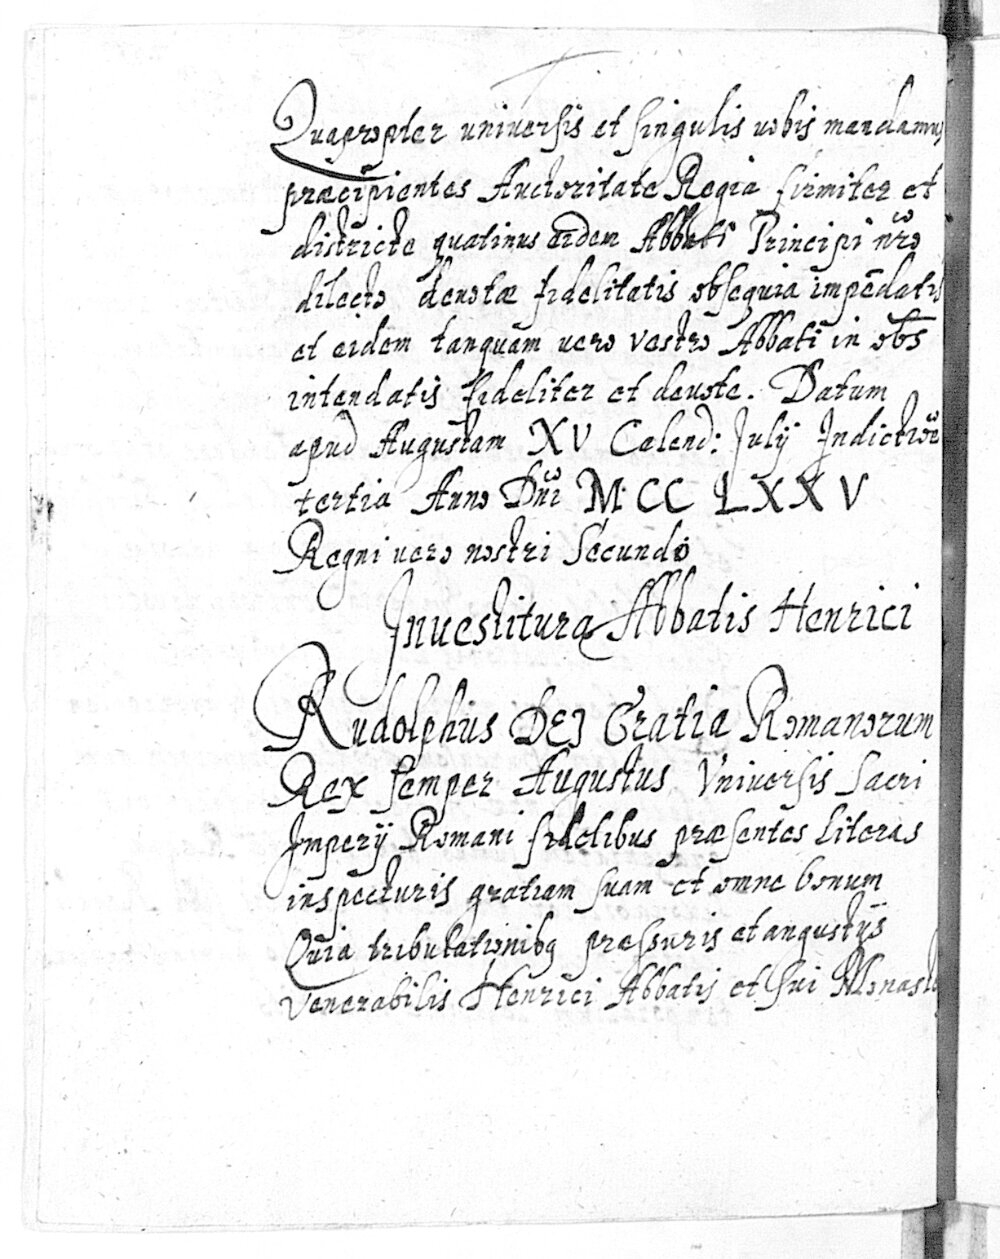 Quapropter universis et singulis vobis mandamus
præcipientes Auctoritate Regia firmiter et
districte quatinus eidem Abbati Principi nr̄o
dilecto devotæ fidelitatis obsequia impēdatis
et eidem tanquam vero vestro Abbati in oībs
intendatis fideliter et devote. Datum
apud Augustam XV Calend: Julÿ Indictiōe
tertia Anno Dn̄i M CC LXXV
Regni vero nostri Secundo
Investitura Abbatis Henrici
Rudolphus DEJ Gratia Romanorum
Rex semper Augustus Universis Sacri
Imperÿ Romani fidelibus præsentes literas
inspecturis gratiam suam et omne bonum
Quia tribulationibq pressuris et angustÿs
Venerabilis Henrici Abbatis et sui Monast